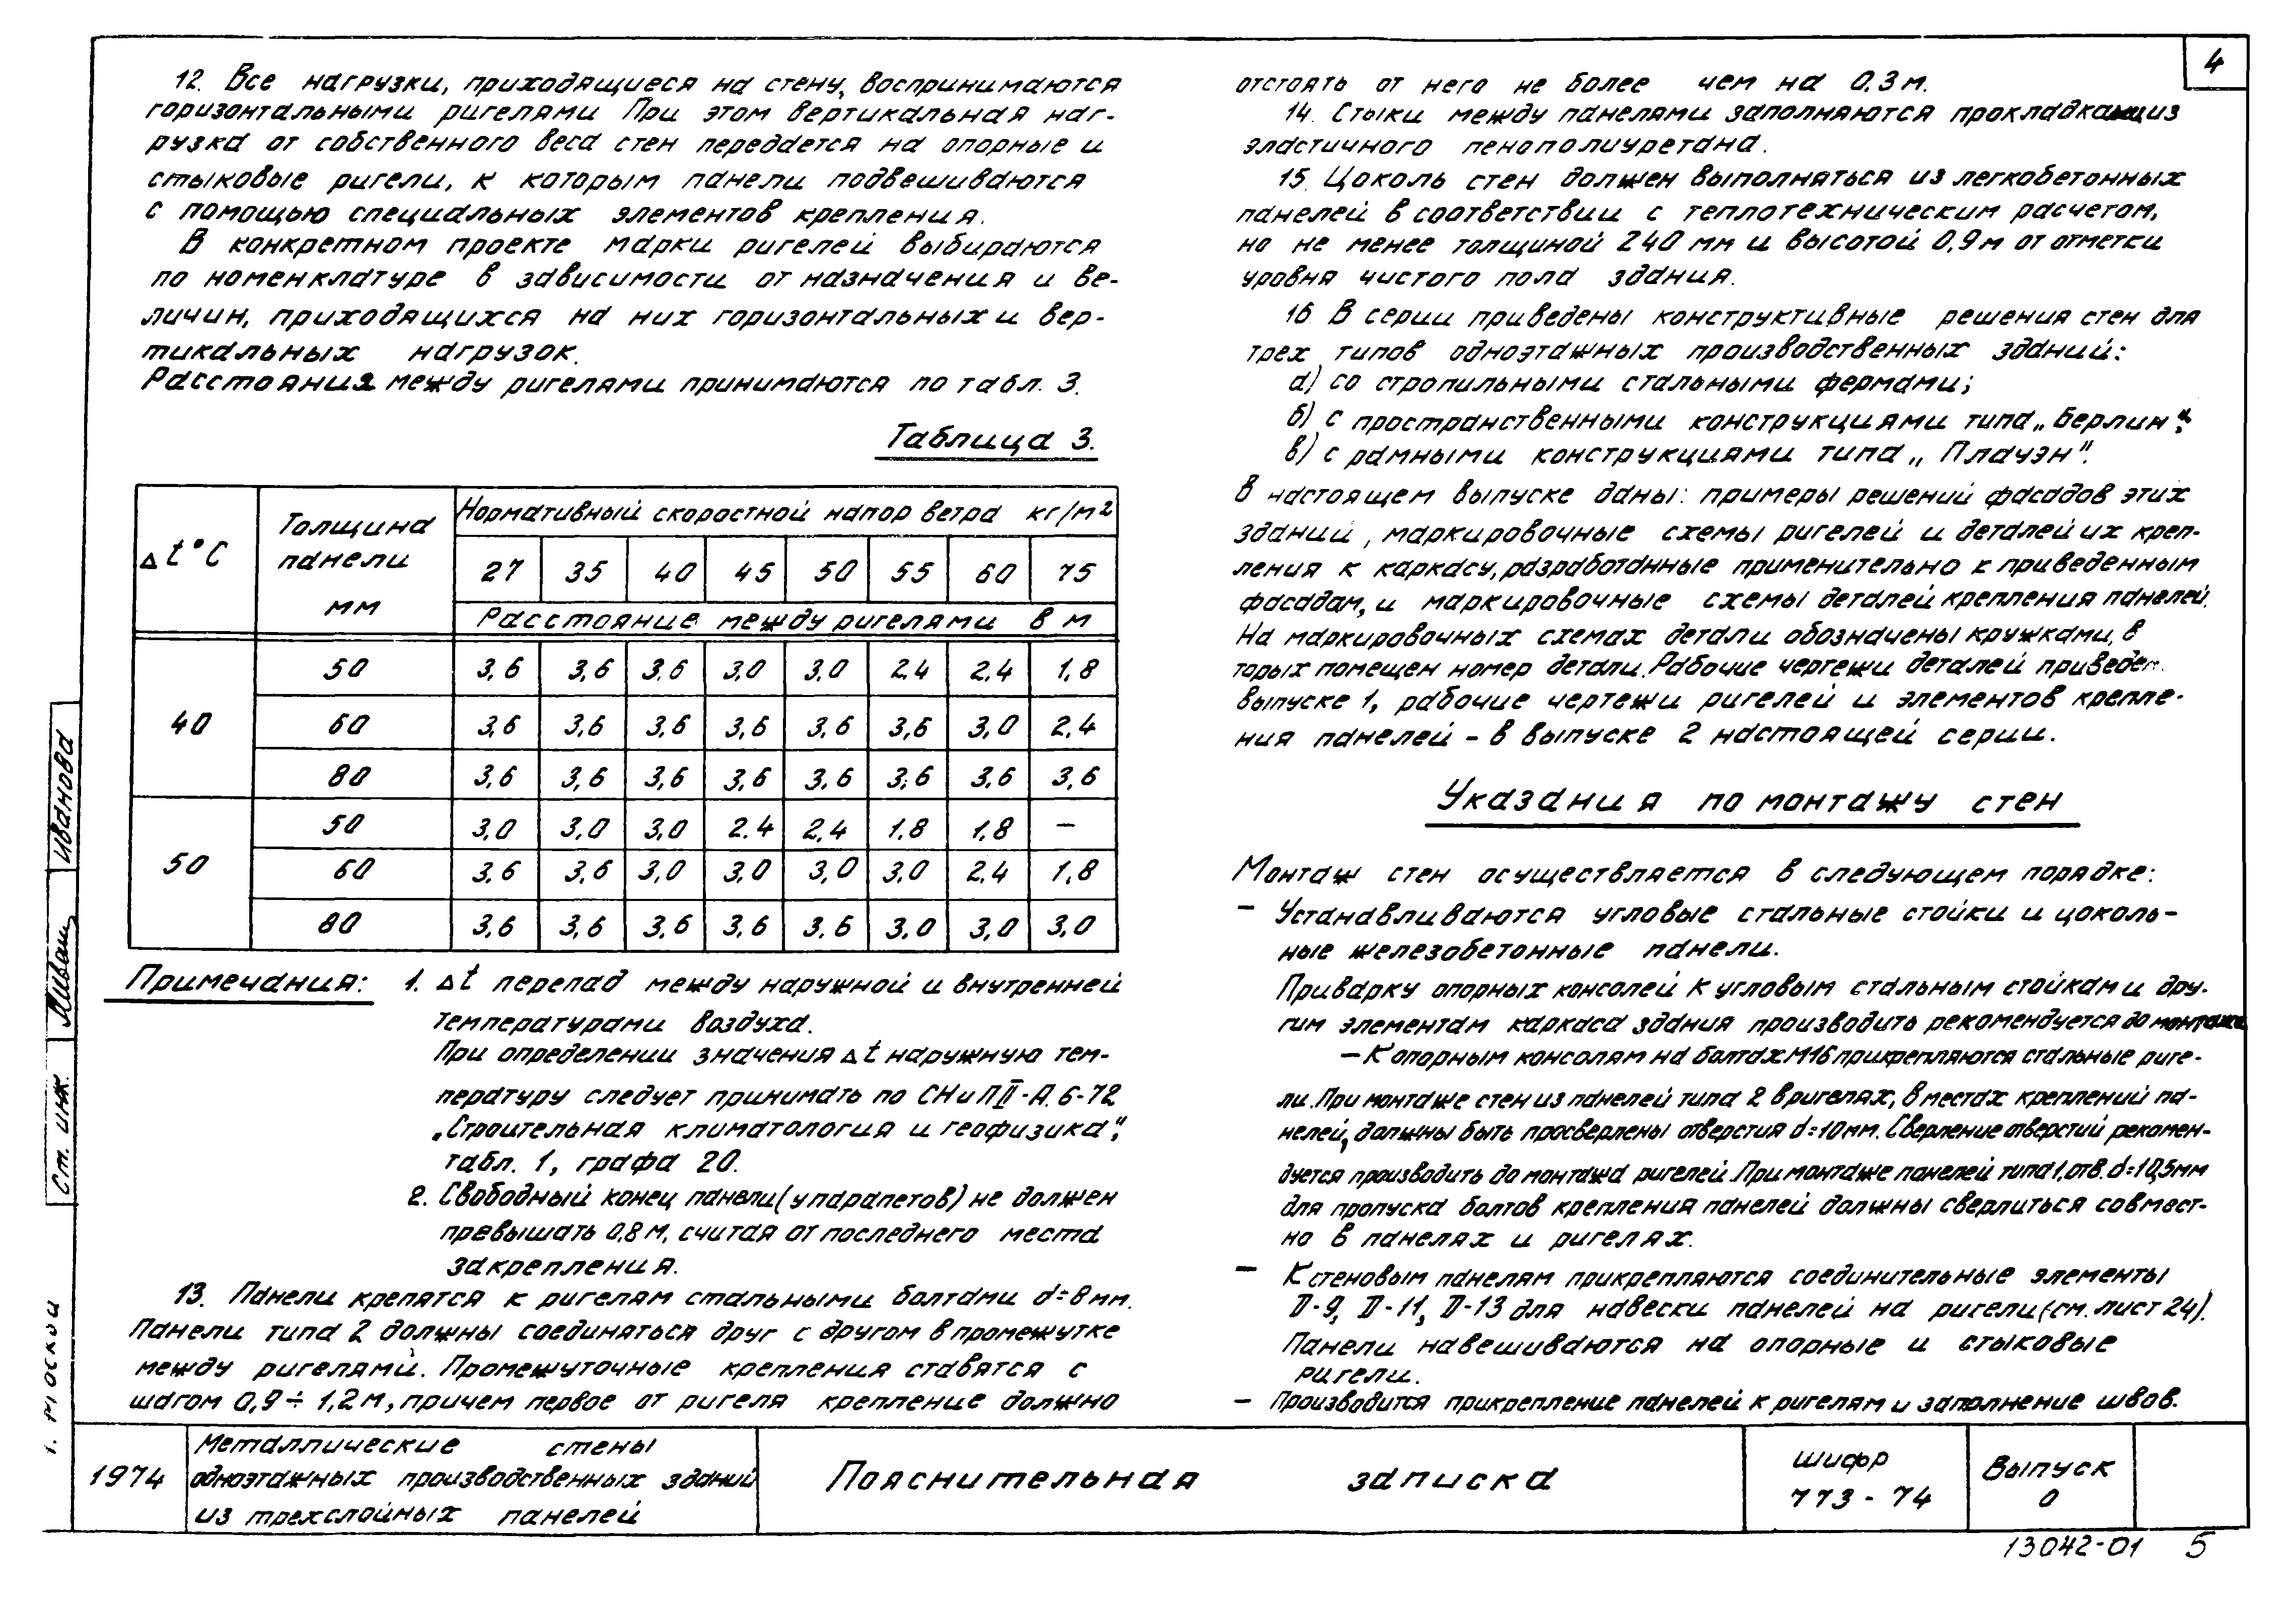 4
12. Все нагрузки, приходящиеся на стену, воспринимаются
горизонтальными ригелями При этом вертикальная наг-
рузка от собственного веса стен передается на опорные и
стыковые ригели, к которым панели подвешиваются
с помощью специальных элементов крепления.
В конкретном проекте марки ригелей выбираются
по номенклатуре в зависимости от назначения и ве-
личин, приходящихся на них горизонтальных и вер-
тикальных нагрузок.
Расстояния между ригелями принимаются по табл. 3.
Таблица 3.
Δt°C
Толщина панели мм
Нормативный скоростной напор ветра кг/м²
27 35 40 45 50 55 60 75
Расстояние между ригелями в м
40
50 3,6 3,6 3,6 3,0 3,0 2,4 2,4 1,8
60 3,6 3,6 3,6 3,6 3,6 3,6 3,0 2,4
80 3,6 3,6 3,6 3,6 3,6 3,6 3,6 3,6
50
50 3,0 3,0 3,0 2.4 2,4 1.8 1,8 —
60 3,6 3,6 3,0 3,0 3,0 3,0 2,4 1,8
80 3,6 3,6 3,6 3,6 3,6 3,0 3,0 3,0
Примечания: 1. Δt перепад между наружной и внутренней
температурами воздуха.
При определении значения Δt наружную тем-
пературу следует принимать по СНиП II-А. 6-72
„Строительная климатология и геофизика",
табл. 1, графа 20.
2. Свободный конец панели (у парапетов) не должен
превышать 0,8 м, считая от последнего места
закрепления.
13. Панели крепятся к ригелям стальными болтами d=8мм.
Панели типа 2 должны соединяться друг с другом в промежутке
между ригелями. Промежуточные крепления ставятся с
шагом 0,9 ÷ 1,2 м, причем первое от ригеля крепление должно
отстоять от него не более чем на 0,3 м.
14. Стыки между панелями заполняются прокладками из
эластичного пенополиуретана.
15. Цоколь стен должен выполняться из легкобетонных
панелей в соответствии с теплотехническим расчетом,
но не менее толщиной 240 мм и высотой 0,9 м от отметки
уровня чистого пола здания.
16. В серии приведены конструктивные решения стен для
трех типов одноэтажных производственных зданий:
а) со стропильными стальными фермами;
б) с пространственными конструкциями типа „Берлин";
в) с рамными конструкциями типа „Плауэн".
В настоящем выпуске даны: примеры решений фасадов этих
зданий, маркировочные схемы ригелей и деталей их креп-
ления к каркасу, разработанные применительно к приведенным
фасадам, и маркировочные схемы деталей крепления панелей.
На маркировочных схемах детали обозначены кружками, в
торых помещен номер детали. Рабочие чертежи деталей приведен
выпуске 1, рабочие чертежи ригелей и элементов крепле-
ния панелей - в выпуске 2 настоящей серии.
Указания по монтажу стен
Монтаж стен осуществляется в следующем порядке:
— Устанавливаются угловые стальные стойки и цоколь-
ные железобетонные панели.
Приварку опорных консолей к угловым стальным стойкам и дру-
гим элементам каркаса здания производить рекомендуется до монтажа
— К опорным консолям на болтах М16 прикрепляются стальные риге-
ли. При монтаже стен из панелей типа 2 в ригелях, в местах креплений па-
нелей, должны быть просверлены отверстия d=10мм. Сверление отверстий рекомен-
дуется производить до монтажа ригелей. При монтаже панелей типа 1, отв. d=10,5мм
для пропуска болтов крепления панелей должны сверлиться совмест-
но в панелях и ригелях.
— К стеновым панелям прикрепляются соединительные элементы
D-9, D-11, D-13 для навески панелей на ригели (см. лист 24).
Панели навешиваются на опорные и стыковые
ригели.
— Производится прикрепление панелей к ригелям и заполнение швов.
Ст. инж. Иванова
г. Москва
1974
Металлические стены
одноэтажных производственных зданий
из трехслойных панелей
Пояснительная записка
шифр
773-74
Выпуск
0
13042-01 5